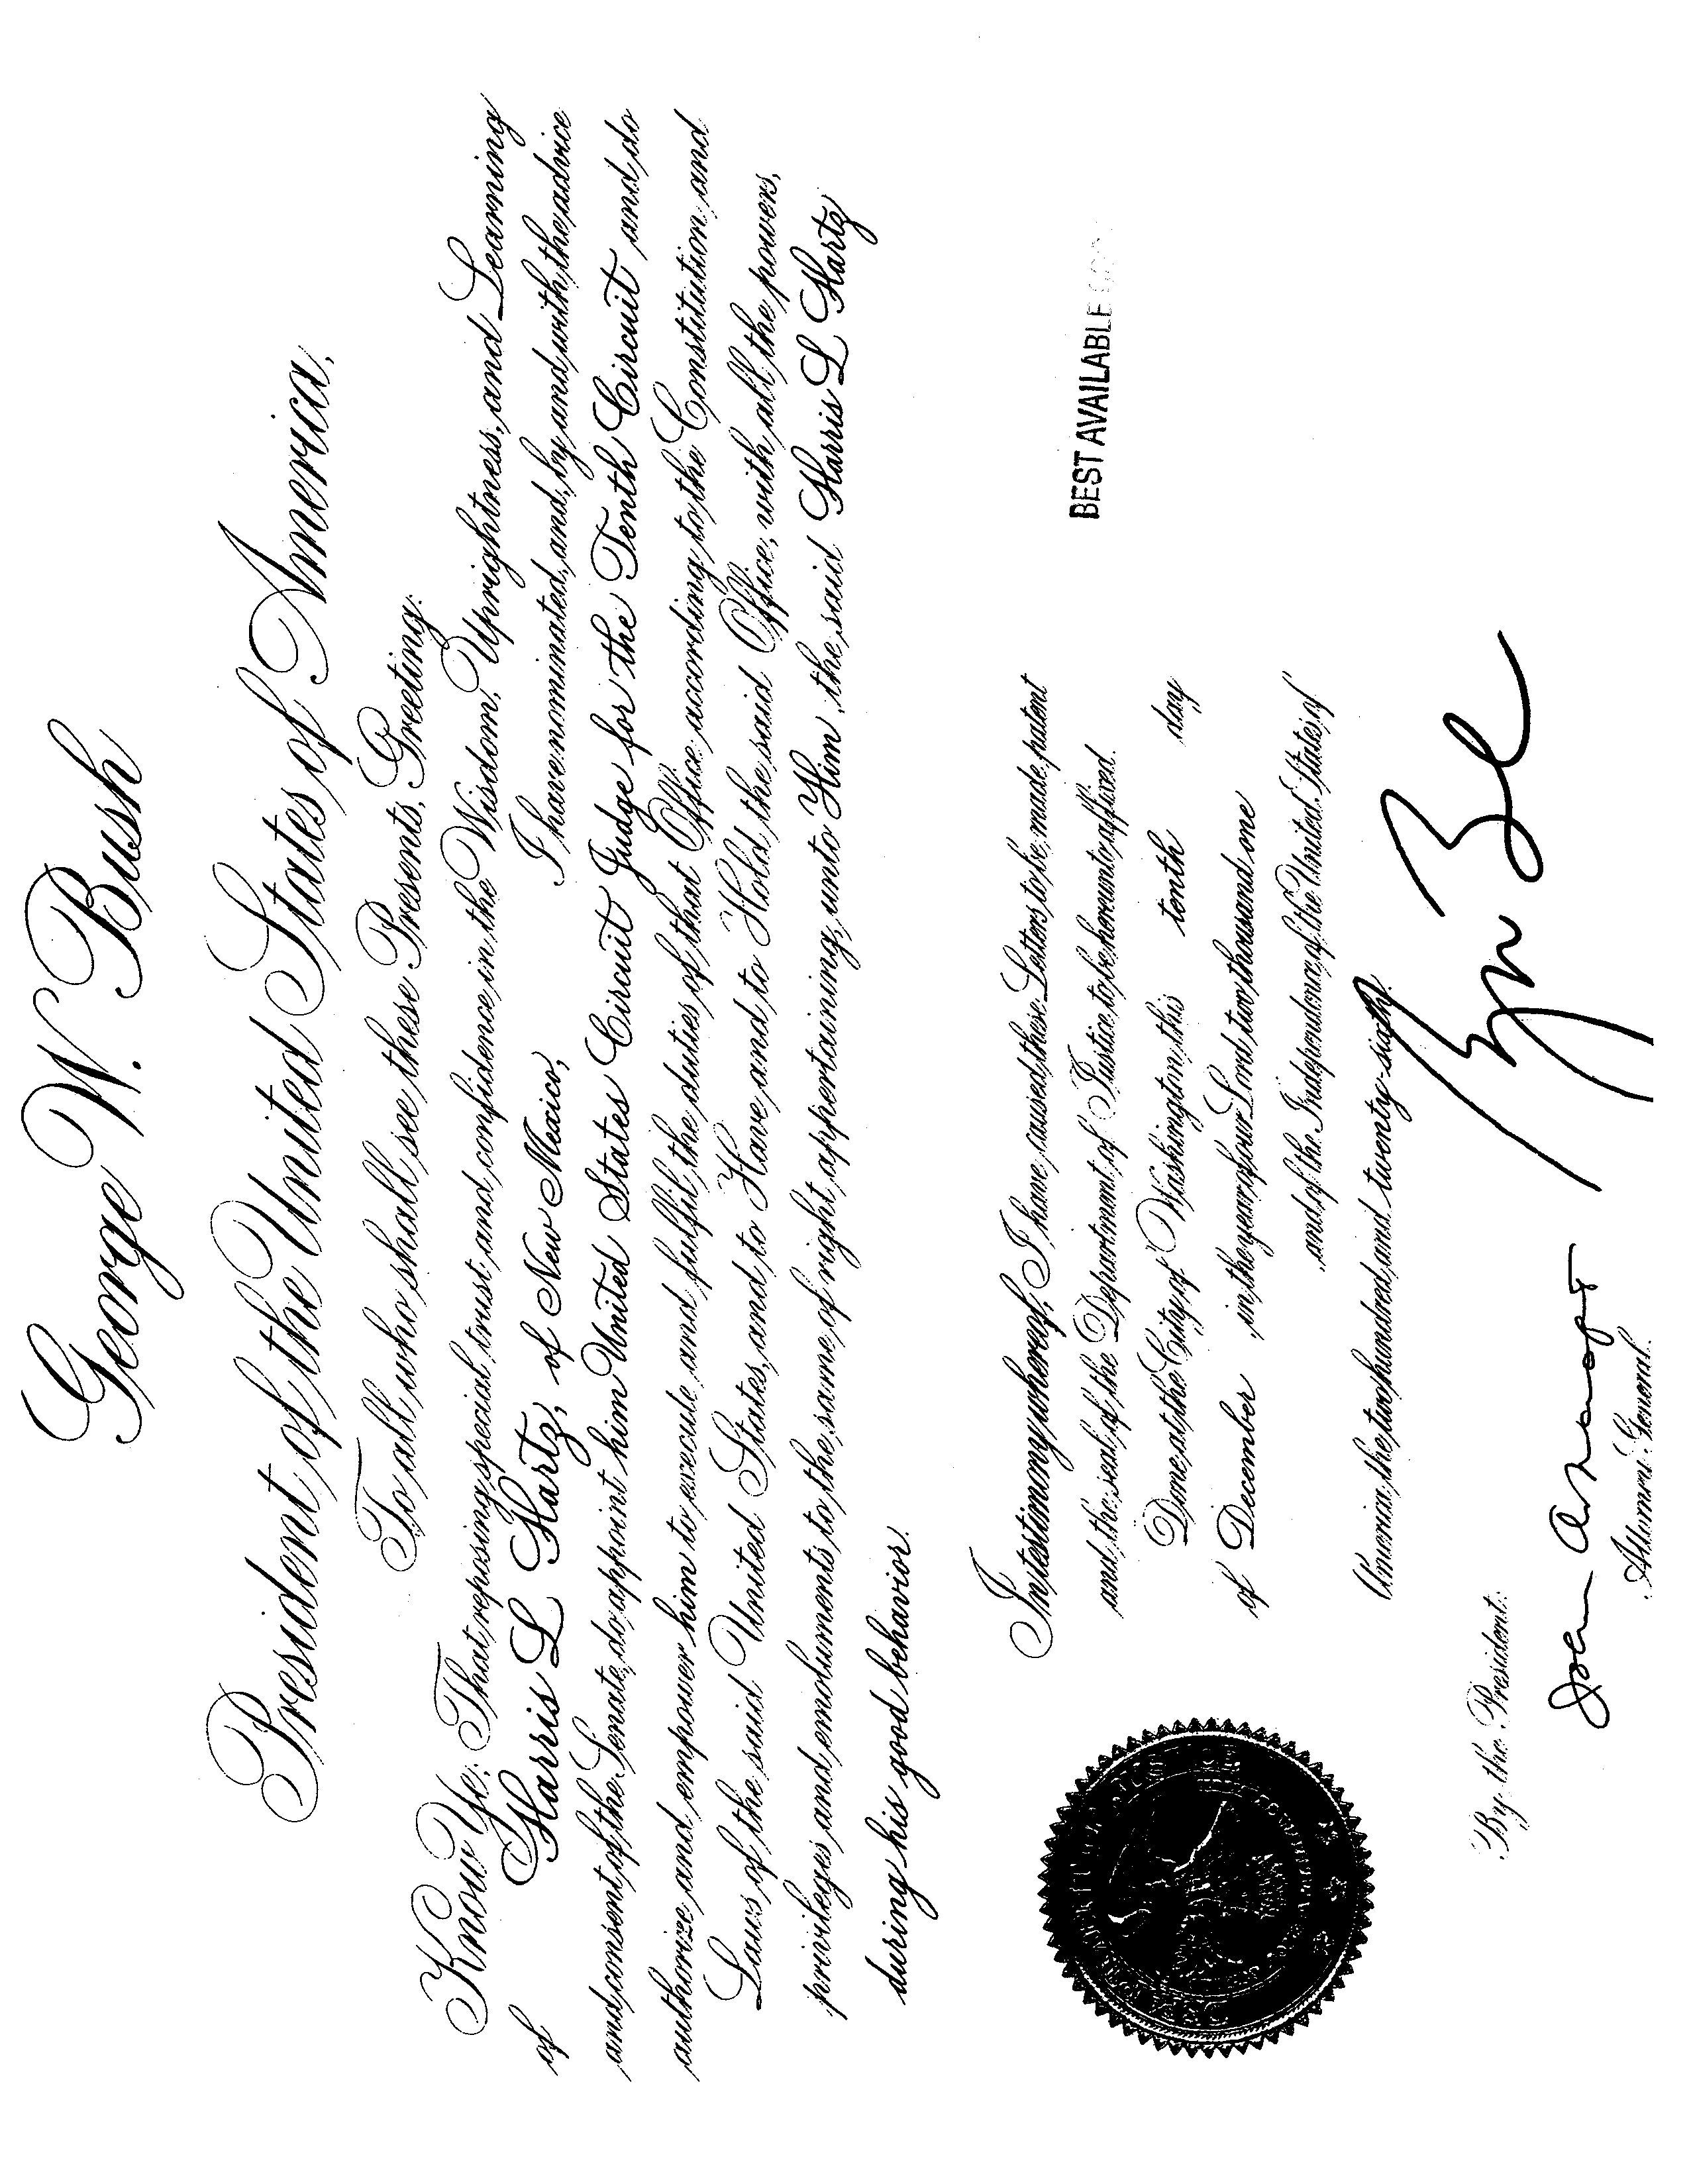 George W. Bush
President of the United States of America,
To all who shall see these Presents, Greeting:
Know Ye; That reposing special trust and confidence in the Wisdom, Uprightness, and Learning
of Harris L Hartz, of New Mexico, I have nominated, and, by and with the advice
and consent of the Senate, do appoint him United States Circuit Judge for the Tenth Circuit and do
authorize and empower him to execute and fulfil the duties of that Office according to the Constitution and
Laws of the said United States, and to Have and to Hold the said Office, with all the powers,
privileges and emoluments to the same of right appertaining, unto Him the said Harris L Hartz
during his good behavior.
In testimony whereof, I have caused these Letters to be made patent
and the seal of the Department of Justice to be hereunto affixed.
BEST AVAILABLE
Done at the City of Washington this tenth day
of December in the year of our Lord two thousand one
and of the Independence of the United States of
America the two hundred and twenty-sixth.
By the President:
John Ashcroft
Attorney General.